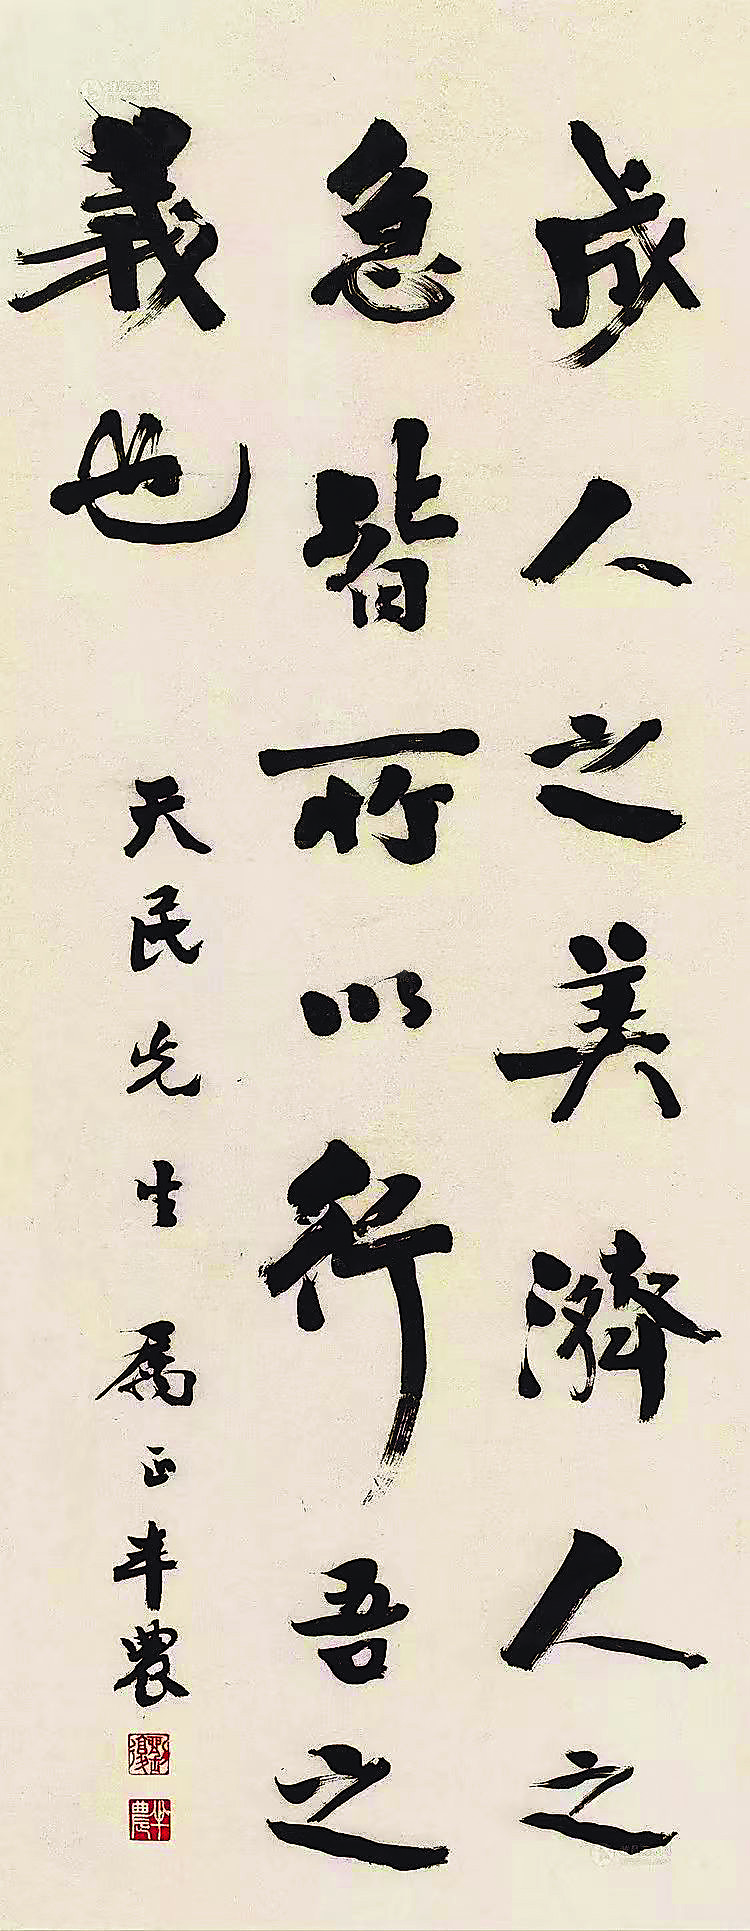 成人之美濟人之
急皆所以行吾之
義也
天民先生 属正 半農
劉復
半農